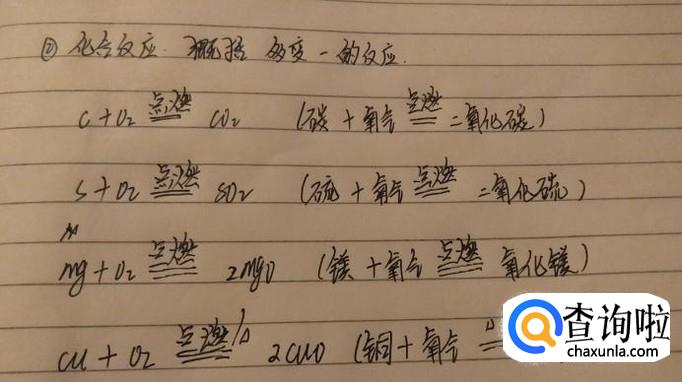 ② 化合反应. 概括 多变一的反应.
C + O₂ 点燃 CO₂ (碳 + 氧气 点燃 二氧化碳)
S + O₂ 点燃 SO₂ (硫 + 氧气 点燃 二氧化硫)
Mg + O₂ 点燃 2MgO (镁 + 氧气 点燃 氧化镁)
Cu + O₂ 点燃/△ 2CuO (铜 + 氧气 △
查询啦
chaxunla.com